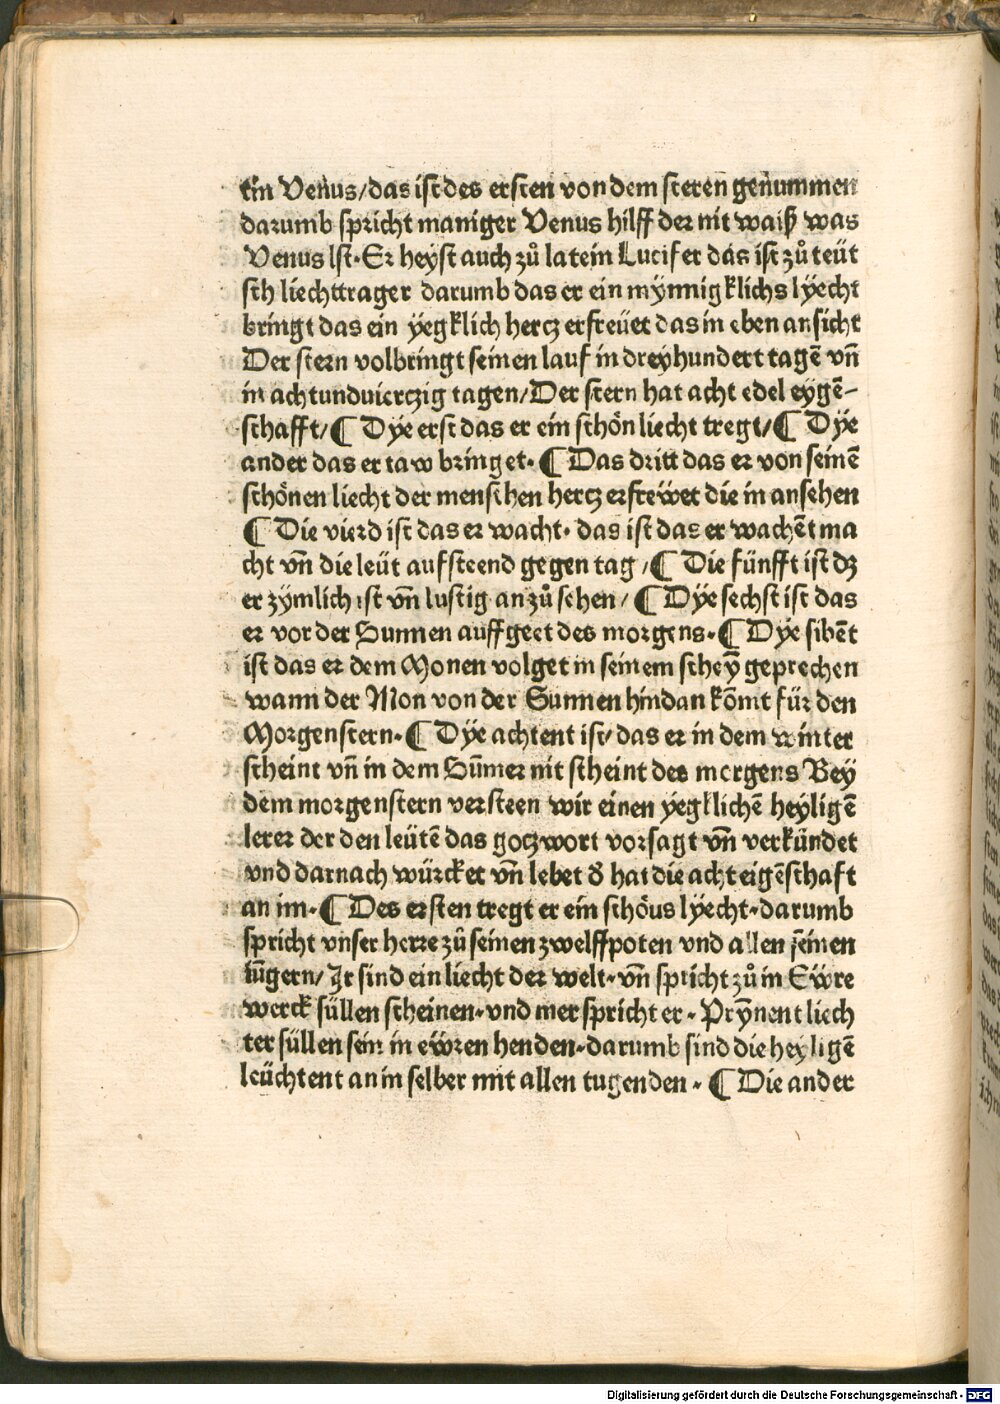 tin Venus/das ist des ersten von dem steren genummen
darumb spricht maniger Venus hilff der nit waiß was
Venus Ist·Er heyst auch zů latein Lucifer das ist zů teüt
sch liechttrager darumb das er ein mÿnnigklichs lÿecht
bringt das ein ÿegklich hercz erfreüet das in eben ansicht
Der stern volbringt seinen lauf in dreyhundert tagē vñ
in achtundvierczig tagen/Der stern hat acht edel eygē-
schafft/¶ Dÿe erst das er ein schön liecht tregt/¶ Dÿe
ander das er taw bringet·¶ Das dritt das er von seinē
schönen liecht der menschen hercz erfrewet die in ansehen
¶ Die vierd ist das er wacht· das ist das er wachēt ma
cht vñ die leüt aufsteend gegen tag/¶ Die fünfft ist dz
er zÿmlich ist vñ lustig an zů sehen/¶ Dÿe sechst ist das
er vor der Sunnen auffgeet des morgens·¶ Dÿe sibēt
ist das er dem Monen volget in seinem scheȳ geprechen
wann der Mon von der Sunnen hindan kōmt für den
Morgenstern·¶ Dÿe achtent ist/das er in dem winter
scheint vñ in dem Sūmer nit scheint des morgens Beÿ
dem morgenstern versteen wir einen ÿegklichē heyligē
lerer der den leütē das goczwort vorsagt vñ verkündet
vnd darnach würcket vñ lebet d̕ hat die acht eigēschaft
an im·¶ Des ersten tregt er ein schöns lÿecht·darumb
spricht vnser herre zů seinen zwelffpoten vnd allen seinen
iūgern/Ir sind ein liecht der welt·vñ spricht zů in Ewre
werck süllen scheinen·vnd mer spricht er·Prȳnent liech
ter süllen sein in ewren henden·darumb sind die heyligē
leüchtent an in selber mit allen tugenden·¶ Die ander
Digitalisierung gefördert durch die Deutsche Forschungsgemeinschaft - DFG